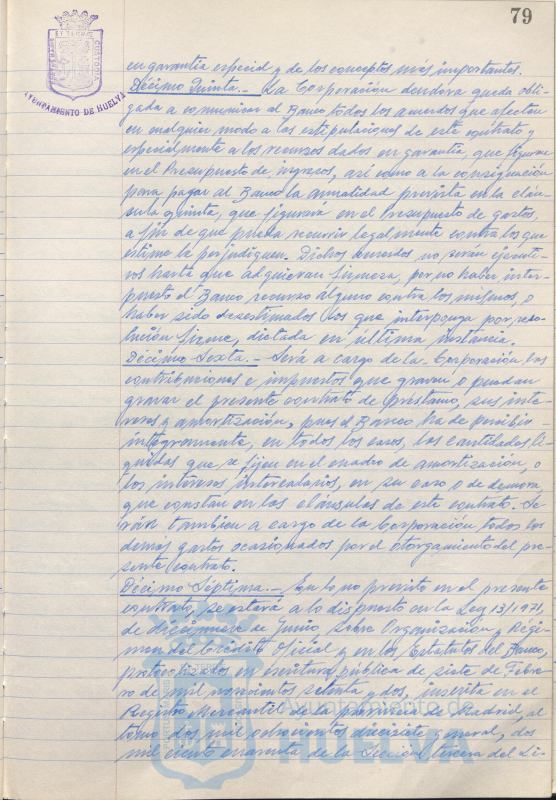 79
AYUNTAMIENTO DE HUELVA
en garantía especial y de los conceptos más importantes.
Décimo Quinta.- La Corporación deudora queda obli-
gada a comunicar al Banco todos los acuerdos que afecten
en cualquier modo a las estipulaciones de este contrato y
especialmente a los recursos dados en garantía, que figuran
en el Presupuesto de ingresos, así como a la consignación
para pagar al Banco la anualidad prevista en la cláu-
sula quinta, que figurará en el Presupuesto de gastos,
a fin de que pueda recurrir legalmente contra los que
estime le perjudiquen. Dichos acuerdos no serán ejecuti-
vos hasta que adquieran firmeza, por no haber inter-
puesto el Banco recurso alguno contra los mismos, o
haber sido desestimados los que interponga por reso-
lución firme, dictada en última instancia.
Décimo Sexta.- Será a cargo de la Corporación las
contribuciones e impuestos que gravan o puedan
gravar el presente contrato de préstamo, sus inte-
reses y amortización, pues el Banco ha de percibir
íntegramente, en todos los casos, las cantidades lí-
quidas que se fijen en el cuadro de amortización, o
los intereses intercalarios, en su caso o de demora
que constan en las cláusulas de este contrato. Se-
rán también a cargo de la Corporación todos los
demás gastos ocasionados por el otorgamiento del pre-
sente contrato.
Décimo Séptima.- En lo no previsto en el presente
contrato, se estará a lo dispuesto en la Ley 13/1971,
de diecinueve de Junio sobre Organización y Régi-
men del Crédito Oficial y en los Estatutos del Banco,
protocolizados en escritura pública de siete de Febre-
ro de mil novecientos setenta y dos, inscrita en el
Registro Mercantil de la provincia de Madrid, al
tomo dos mil ochocientos diecisiete general, dos
mil ciento cuarenta de la Sección tercera del Li-
Ayuntamiento de
HUELVA